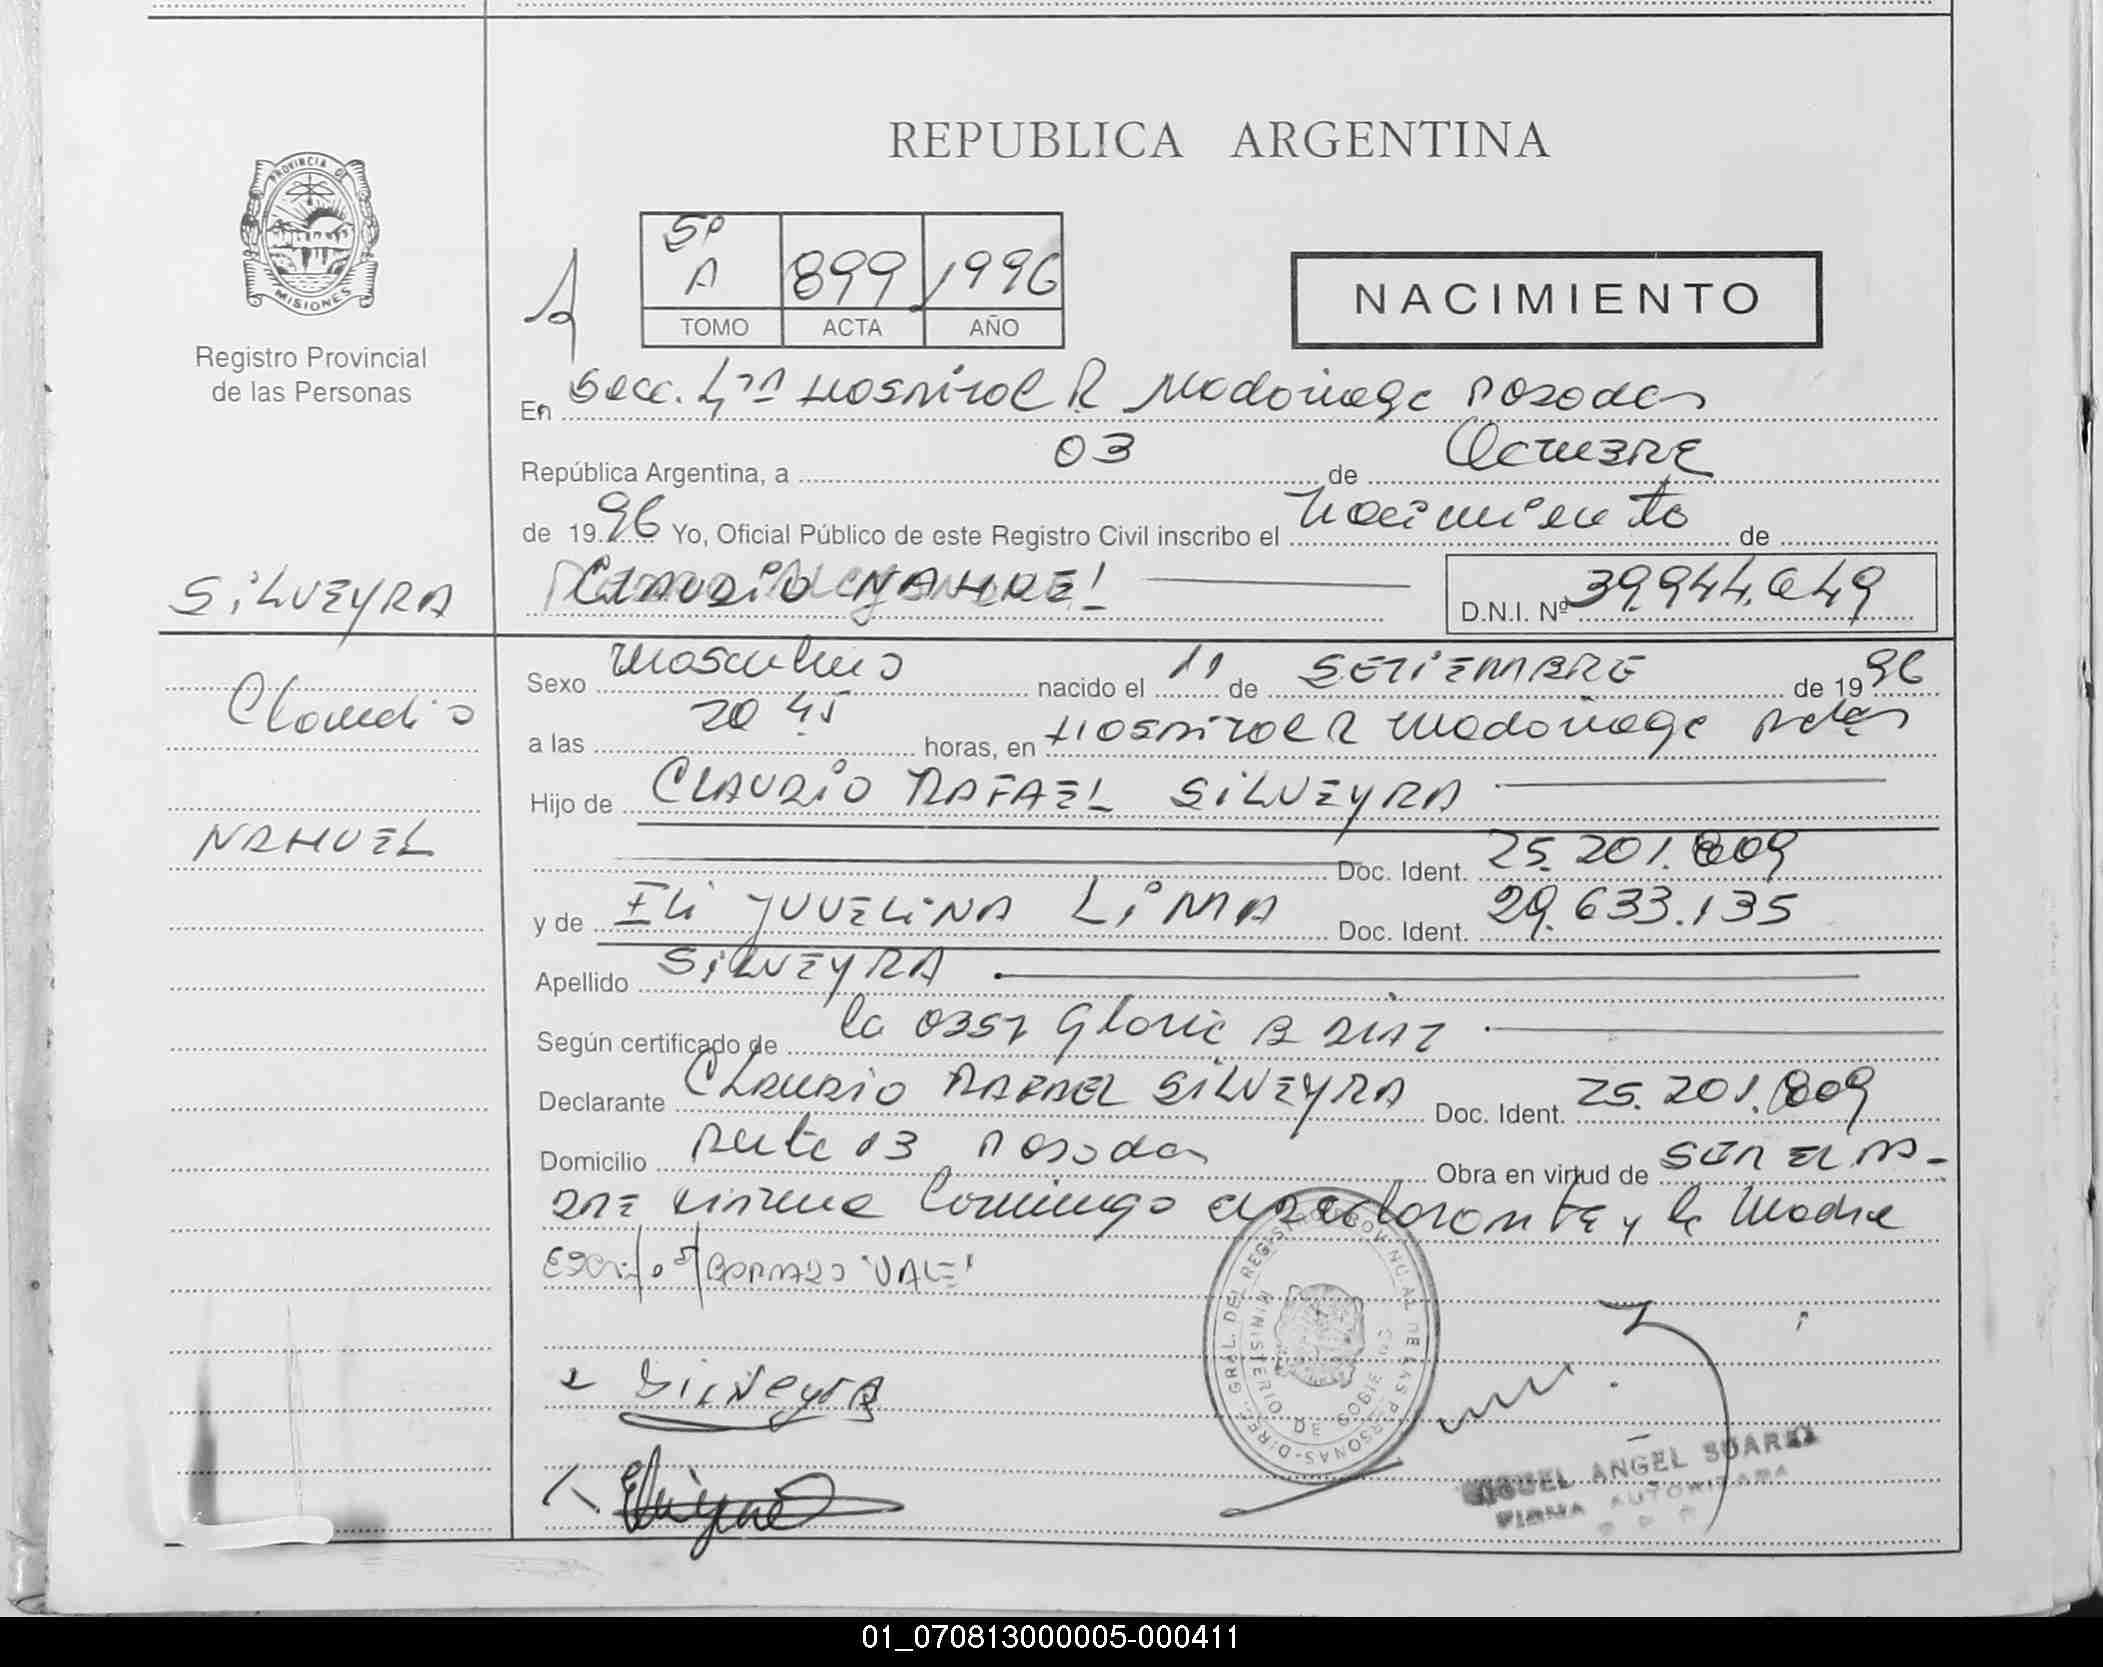 REPUBLICA ARGENTINA
PROVINCIA DE
MISIONES
Registro Provincial
de las Personas
5º
A 899 1996
TOMO ACTA AÑO
NACIMIENTO
En Secc. 4ta Hospital R Madariaga Posadas
República Argentina, a 03 de Octubre
de 1996 Yo, Oficial Público de este Registro Civil inscribo el Nacimiento de
SILVEYRA
CLAUDIO NAHUEL
D.N.I. Nº 39.944.649
Claudio
NAHUEL
Sexo Masculino nacido el 11 de SETIEMBRE de 1996
a las 20 45 horas, en Hospital R Madariaga Pdas
Hijo de CLAUDIO RAFAEL SILVEYRA
Doc. Ident. 25.201.809
y de ELI JUVELINA LIMA Doc. Ident. 29.633.135
Apellido SILVEYRA
Según certificado de la Obst Gloria B DIAZ
Declarante CLAUDIO RAFAEL SILVEYRA Doc. Ident. 25.201.809
Domicilio Ruta 13 Posadas Obra en virtud de SER EL PA-
DRE firma Conmigo el declarante y la Madre
Escrito s/ BORRADO "VALE"
Silveyra
DIREC. GRAL. DEL REGISTRO PROVINCIAL DE LAS PERSONAS
MINISTERIO DE GOBIERNO
MIGUEL ANGEL SUAREZ
FIRMA AUTORIZADA
01_070813000005-000411